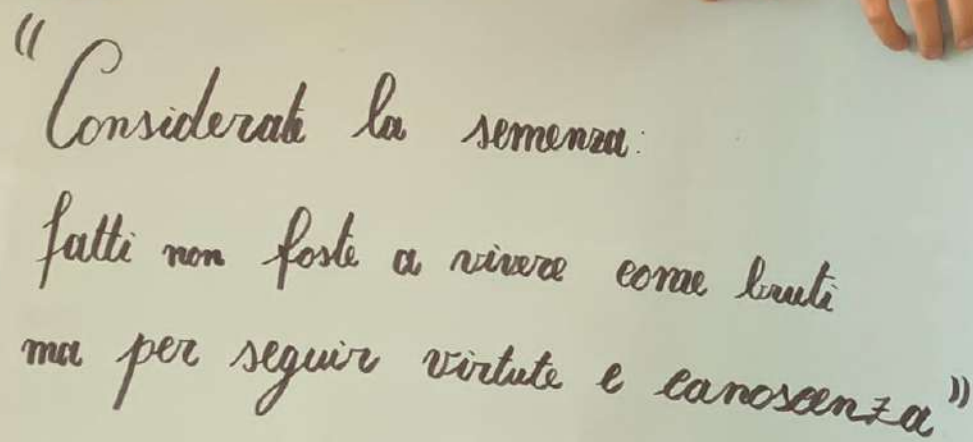 "Considerate la semenza:
fatti non foste a vivere come bruti
ma per seguir virtute e canoscenza"